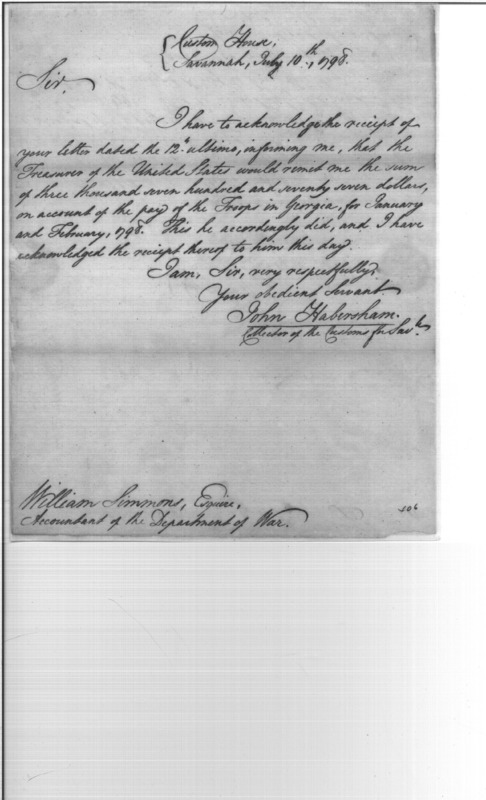 Custom House,
Savannah, July 10th, 1798.
Sir,
I have to acknowledge the receipt of
your letter dated the 12th ultimo, informing me, that the
Treasurer of the United States would remit me the sum
of three thousand seven hundred and seventy seven dollars,
on account of the pay of the Troops in Georgia, for January
and February, 1798. This he accordingly did, and I have
acknowledged the receipt thereof to him this day.
I am, Sir, very respectfully,
Your obedient Servant
John Habersham.
Collector of the Customs for Savh.
William Simmons, Esquire,
Accountant of the Department of War.
506